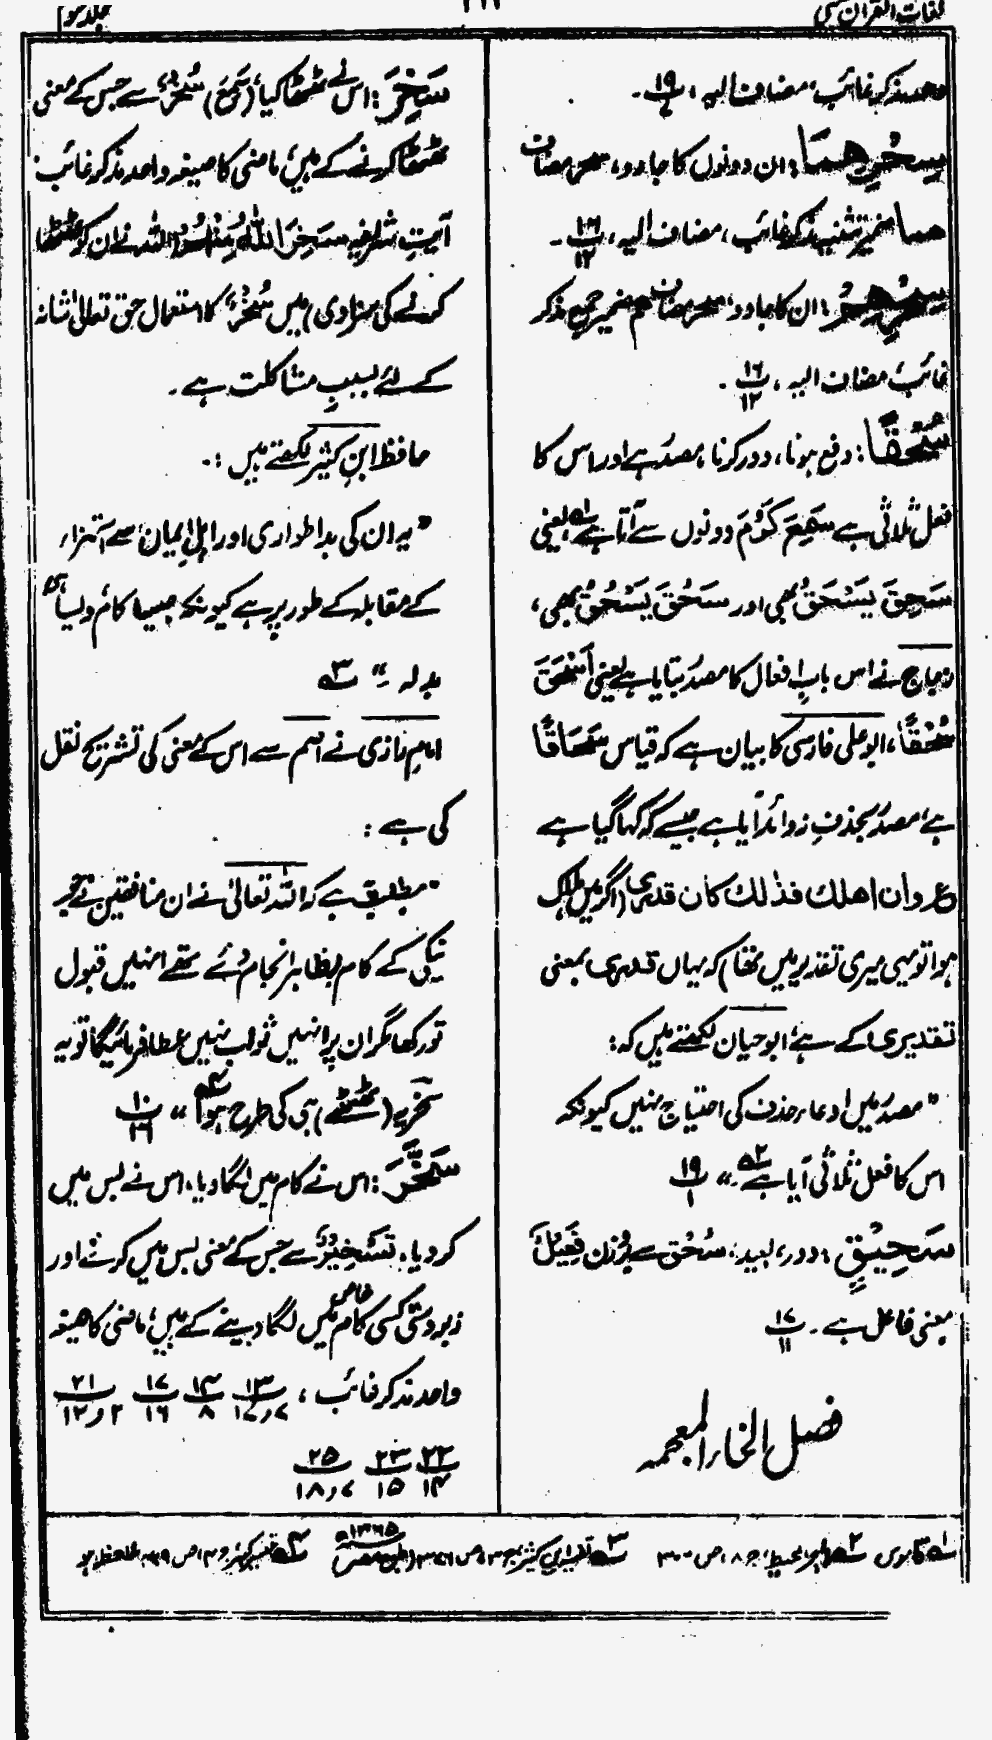 لغات القرآن
جلد سوم
واحد مذکر غائب، مضاف الیہ، ۱۹
سِحْرِهِمَا : ان دونوں کا جادو، سحر مضاف
هما ضمیر تثنیہ مذکر غائب، مضاف الیہ، ۱۶/۱۲ ۔
سِحْرِهِمْ : ان کا جادو، سحر مضاف هم ضمیر جمع مذکر
غائب مضاف الیہ، ۱۶/۱۲ ۔
سُحْقًا : دفع ہونا، دور کرنا، مصدر ہے اور اس کا
فعل ثلاثی ہے سَمِعَ کَرُمَ دونوں سے آتا ہے لہ یعنی
سَحِقَ یَسْحَقُ بھی اور سَحُقَ یَسْحُقُ بھی،
زجاج نے اس باب افعال کا مصدر بتایا ہے یعنی اَسْحَقَ
سُحْقًا، ابو علی فارسی کا بیان ہے کہ قیاس سَحَاقًا
ہے، مصدر بحذفِ زوائد آیا ہے جیسے کہ کہا گیا ہے
ع وان اهلك فذلك كان قدری (اگر میں ہلاک
ہوا تو یہی میری تقدیر میں تھا) کہ یہاں قدری بمعنی
تقدیری کے ہے، ابو حیان لکھتے ہیں کہ:
" مصدر میں ادعاء حذف کی احتیاج نہیں کیونکہ
اس کا فعل ثلاثی آیا ہے ۲ھ " ۱۹/۱
سَحِیْقٍ : دور، بعید، سُحْق سے بروزن فَعِیْلٌ
معنی فاعل ہے ۔ ۱۷/۱۱
فصل الخاء المعجمہ
سَخِرَ : اس نے ٹھٹھا کیا، (سَمِعَ) سُخْرٌ سے جس کے معنی
ٹھٹھا کرنے کے ہیں، ماضی کا صیغہ واحد مذکر غائب،
آیتِ شریفہ سَخِرَ اللّٰهُ مِنْهُمْ (اللہ نے ان کو ٹھٹھا
کرنے کی سزا دی) میں سُخْرٌ کا استعمال حق تعالیٰ شانہ
کے لئے بسببِ مشاکلت ہے ۔
حافظ ابنِ کثیر لکھتے ہیں :۔
" یہ ان کی بد اطواری اور اہلِ ایمان سے استہزاء
کے مقابلہ کے طور پر ہے کیونکہ جیسا کام ویسا ہی
بدلہ ۔" ۳ھ
امام رازی نے اصم سے اس کے معنی کی تشریح نقل
کی ہے :
" مطلب یہ ہے کہ اللہ تعالیٰ نے ان منافقین نے جو
نیکی کے کام بظاہر انجام دئے تھے انہیں قبول
تو رکھا مگر ان پر انہیں ثواب نہیں عطا فرمائیگا تو یہ
سخریہ (ٹھٹھے) ہی کی طرح ہوا ۴ھ " ۱۰/۱۶
سَخَّرَ : اس نے کام میں لگا دیا، اس نے بس میں
کر دیا، تَسْخِیْرٌ سے جس کے معنی بس میں کرنے اور
زبردستی کسی خاص کام میں لگا دینے کے ہیں، ماضی کا صیغہ
واحد مذکر غائب، ۱۳/۷و۱۷ ۱۴/۸ ۱۷/۱۶ ۲۱/۲و۱۲
۲۲/۱۴ ۲۳/۱۵ ۲۵/۷و۱۸
۱ھ قاموس ۲ھ البحر المحیط، ج ۸، ص ۳۰۰ ۳ھ تفسیر ابن کثیر ج ۲، ص ۳۷۶ (طبع مصر ۱۳۶۵ھ) ۴ھ تفسیر کبیر ج ۴، ص ملاحظہ ہو